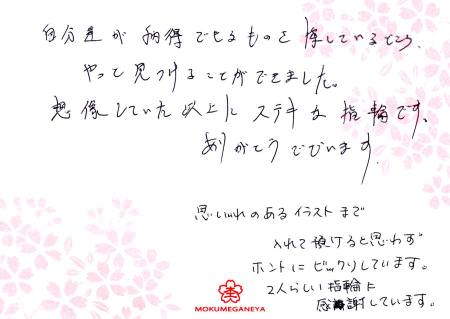 自分達が納得できるものを探しているところ、
やっと見つけることができました。
想像していた以上にステキな指輪です。
ありがとうございます。
思い入れのあるイラストまで
入れて頂けると思わず
ホントにビックリしています。
2人らしい指輪に
感謝しています。
MOKUMEGANEYA